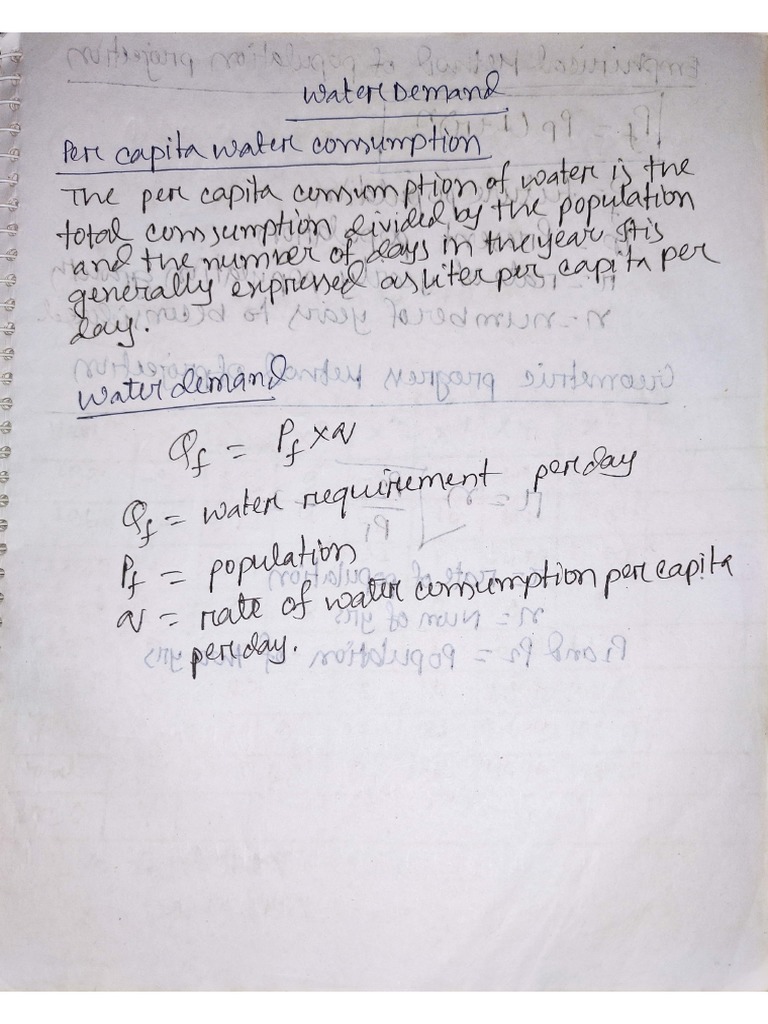 Water Demand
Per capita water consumption
The per capita consumption of water is the
total consumption divided by the population
and the number of days in the year It is
generally expressed as liter per capita per
day.
Water demand
Qf = Pf × q
Qf = water requirement per day
Pf = population
q = rate of water consumption per capita
per day.